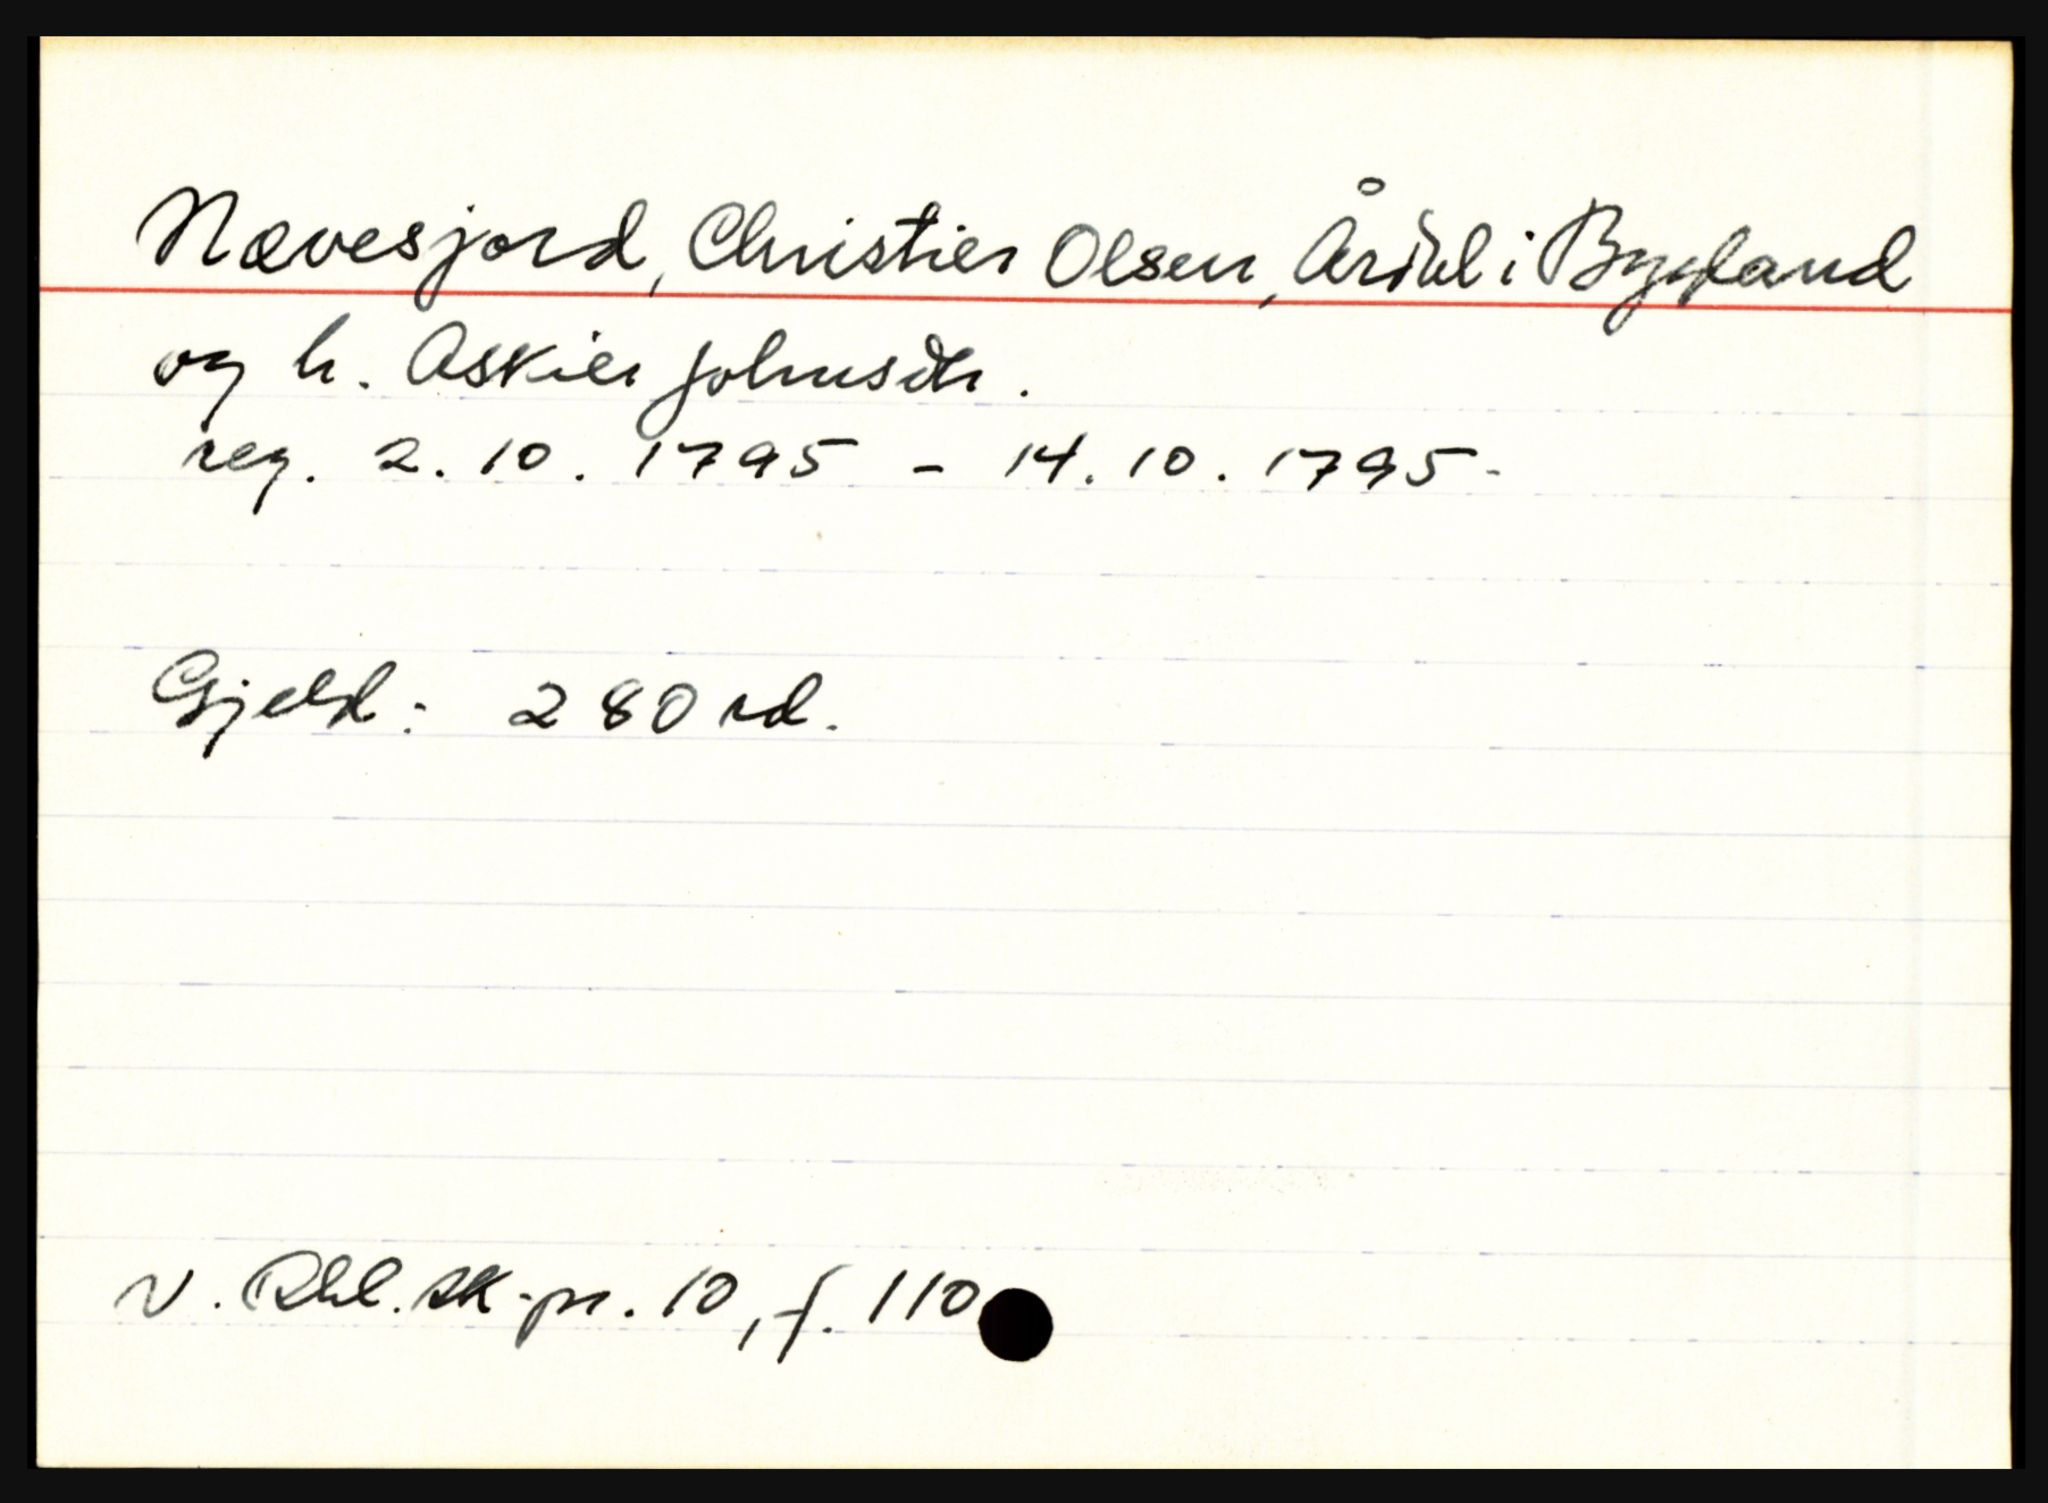 Nævesjord, Christier Olsen, Årdal i Bygland
og h. Askier Johnsdtr.
reg. 2.10.1795 - 14.10.1795.
Gjeld: 280 rd.
v. Rbl. sk.pr. 10, f. 110